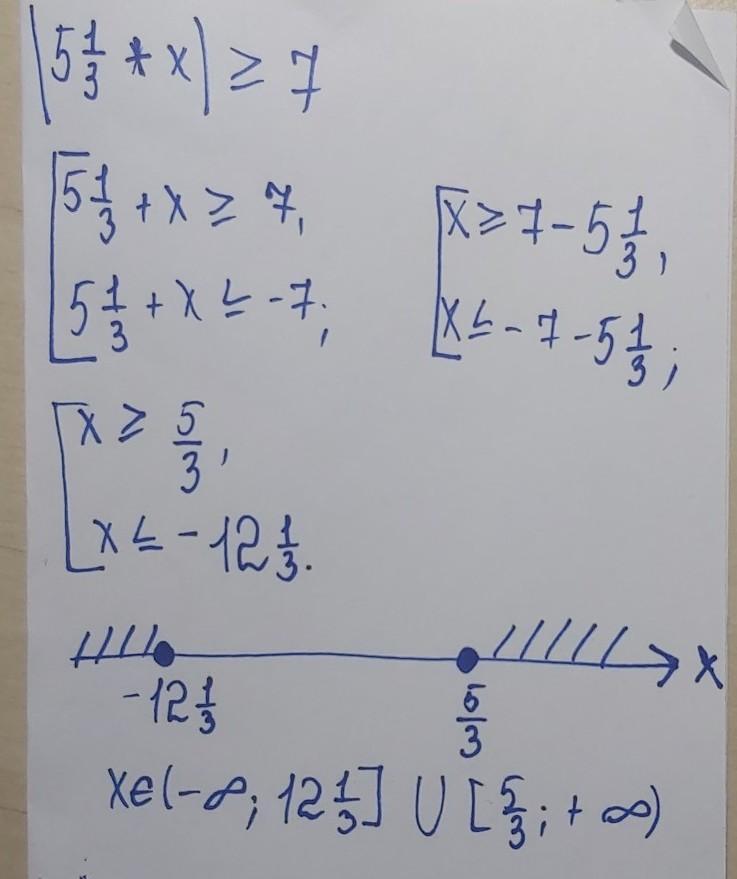 |5 1/3 * x| ≥ 7
[5 1/3 + x ≥ 7,
5 1/3 + x ≤ -7;
[x ≥ 7 - 5 1/3,
x ≤ - 7 - 5 1/3;
[x ≥ 5/3,
x ≤ - 12 1/3.
x
-12 1/3
5/3
x∈(-∞; 12 1/3] ∪ [5/3; + ∞)